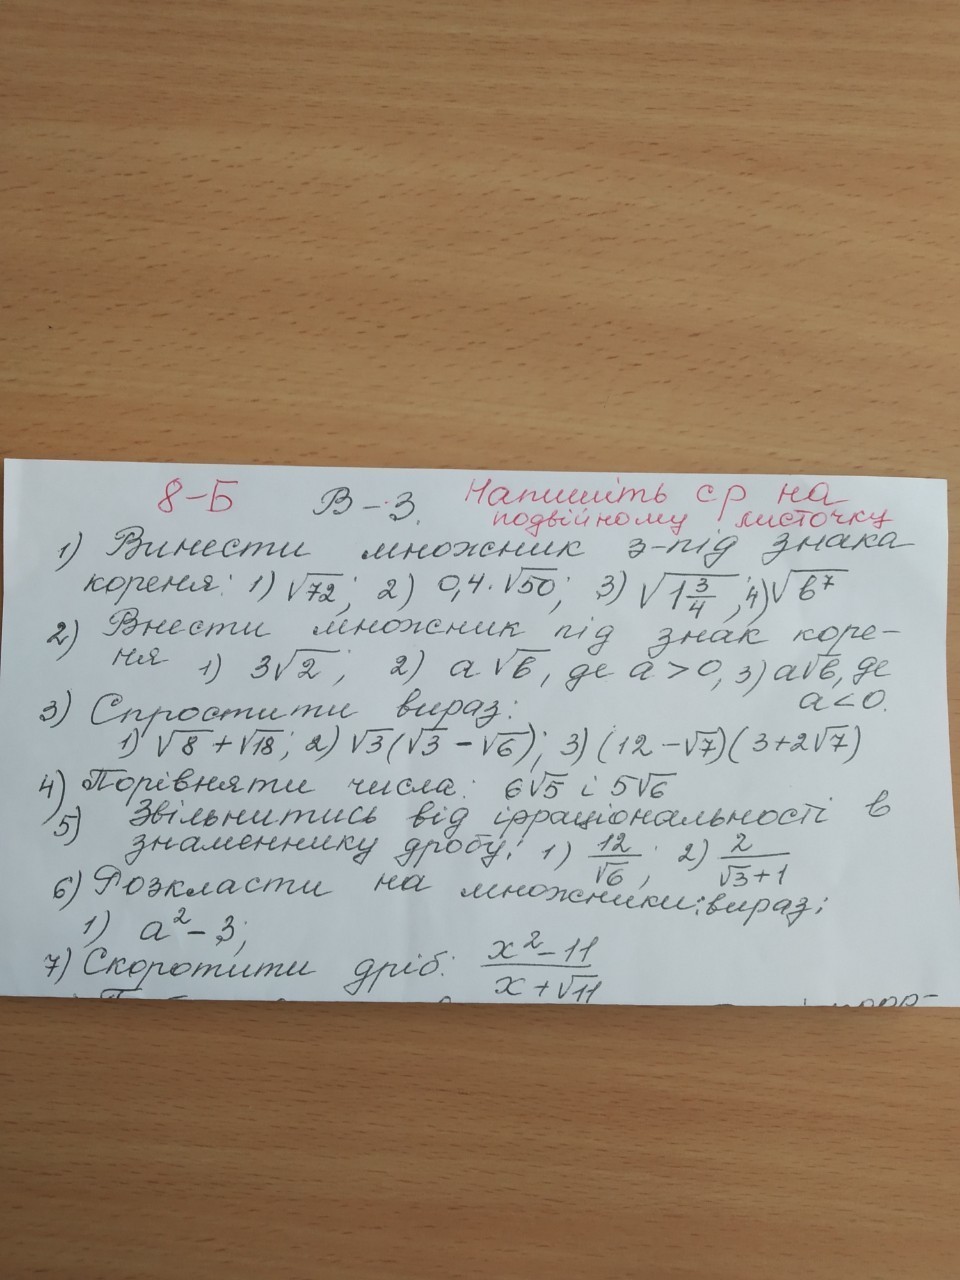 8-Б В-3. Напишіть ср на
подвійному листочку
1) Винести множник з-під знака
кореня: 1) √72; 2) 0,4·√50; 3) √1 3/4; 4) √b⁷
2) Внести множник під знак коре-
ня 1) 3√2; 2) a√b, де a>0, 3) a√b, де
a<0.
3) Спростити вираз:
1) √8+√18; 2) √3(√3-√6); 3) (12-√7)(3+2√7)
4) Порівняти числа: 6√5 і 5√6
5) Звільнитись від ірраціональності в
знаменнику дробу: 1) 12/√6; 2) 2/(√3+1)
6) Розкласти на множники: вираз:
1) a²-3;
7) Скоротити дріб: (x²-11)/(x+√11)